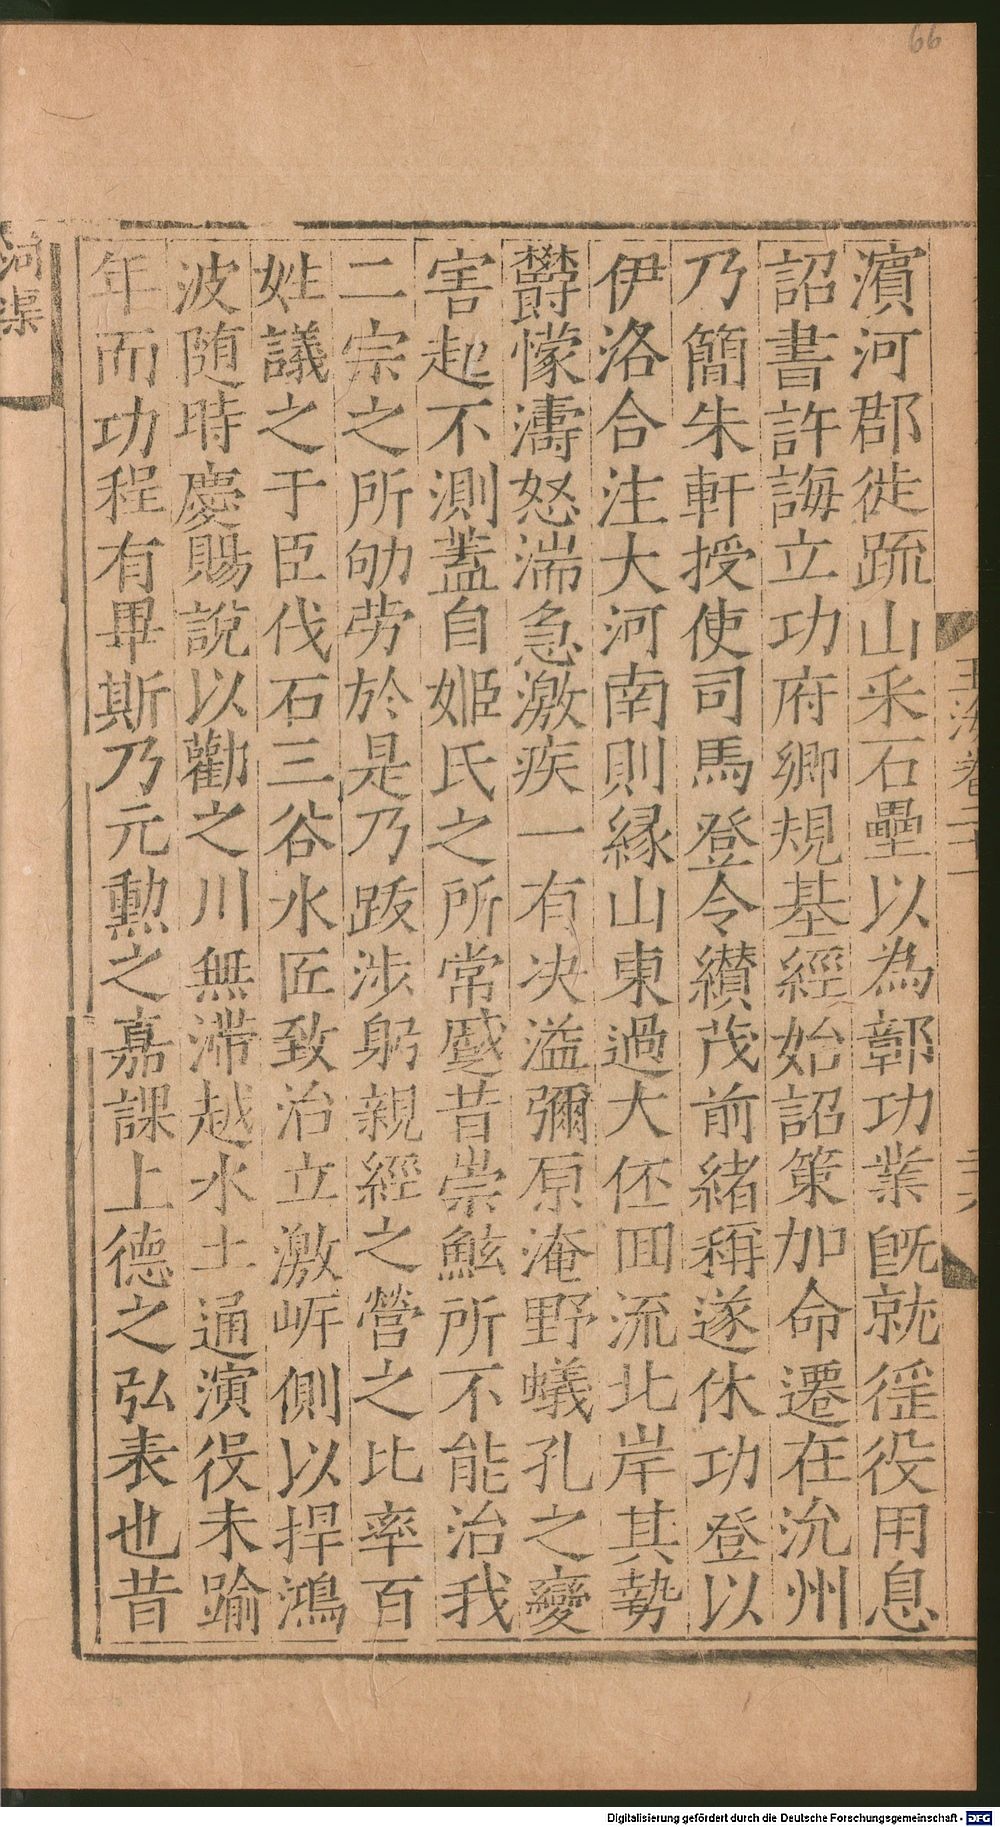 66
玉海卷二十一
二十六
濵河郡徙䟽山采石壘以為鄣功業旣就徭役用息
詔書許誨立功府卿規基經始詔策加命遷在沇州
乃簡朱軒授使司馬登令纉茂前緒稱遂休功登以
伊洛合注大河南則縁山東過大伾囬流北岸其勢
欝懞濤怒湍急激疾一有决溢彌原淹野蟻孔之變
害起不測蓋自姬氏之所常慼昔崇鮌所不能治我
二宗之所劬劳於是乃跋涉躬親經之營之比率百
姓議之于臣伐石三谷水匠致治立激岸側以捍鴻
波随時慶賜說以勸之川無滞越水土通演役未踰
年而功程有畢斯乃元勳之嘉課上德之弘表也昔
河渠
Digitalisierung gefördert durch die Deutsche Forschungsgemeinschaft - DFG